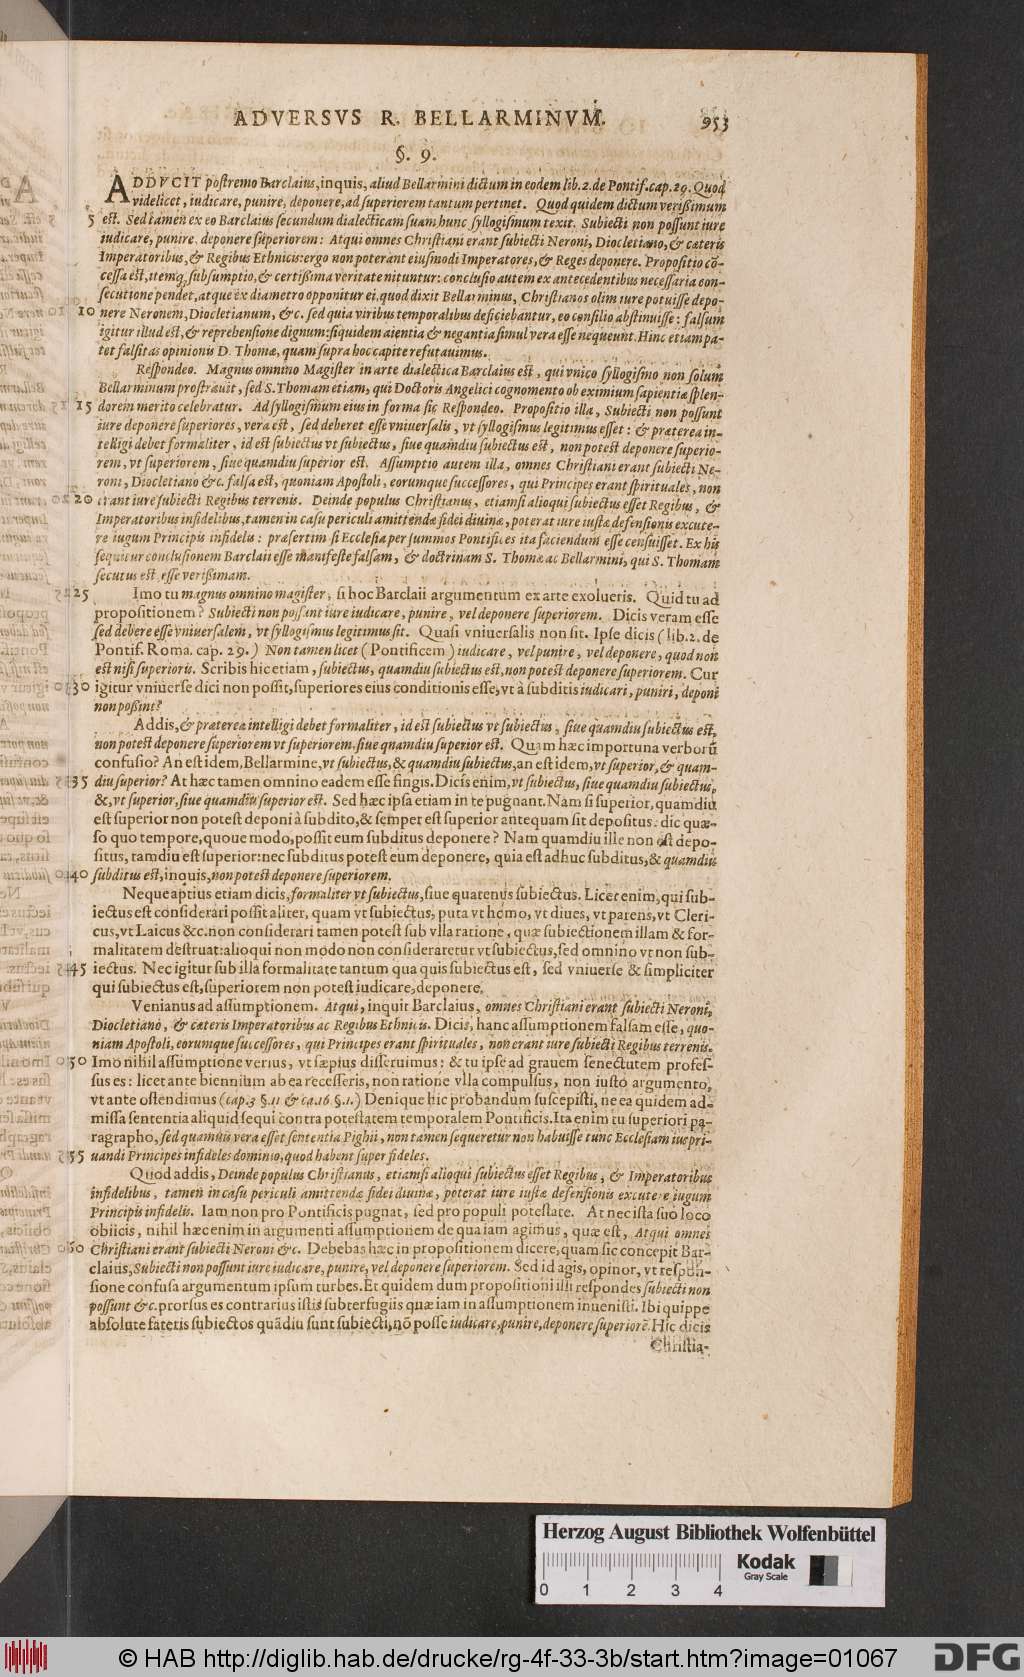 ADVERSVS R. BELLARMINVM. 953
§. 9.
ADDVCIT postremo Barclaius, inquis, aliud Bellarmini dictum in eodem lib. 2. de Pontif. cap. 29. Quod
videlicet, iudicare, punire, deponere, ad superiorem tantum pertinet. Quod quidem dictum verißimum
5 est. Sed tamen ex eo Barclaius secundum dialecticam suam hunc syllogismum texit. Subiecti non possunt iure
iudicare, punire, deponere superiorem: Atqui omnes Christiani erant subiecti Neroni, Diocletiano, & cæteris
Imperatoribus, & Regibus Ethnicis: ergo non poterant eiusmodi Imperatores, & Reges deponere. Propositio cō-
cessa est, itemq; subsumptio, & certißima veritate nituntur: conclusio autem ex antecedentibus necessaria con-
secutione pendet, atque ex diametro opponitur ei, quod dixit Bellarminus, Christianos olim iure potuisse depo-
10 nere Neronem, Diocletianum, &c. sed quia viribus temporalibus deficiebantur, eo consilio abstinuisse: falsum
igitur illud est, & reprehensione dignum: siquidem aientia & negantia simul vera esse nequeunt. Hinc etiam pa-
tet falsitas opinionis D. Thomæ, quam supra hoc capite refutauimus.
Respondeo. Magnus omnino Magister in arte dialectica Barclaius est, qui vnico syllogismo non solum
Bellarminum prostrauit, sed S. Thomam etiam, qui Doctoris Angelici cognomento ob eximium sapientiæ splen-
15 dorem merito celebratur. Ad syllogismum eius in forma sic Respondeo. Propositio illa, Subiecti non possunt
iure deponere superiores, vera est, sed deberet esse vniuersalis, vt syllogismus legitimus esset: & præterea in-
telligi debet formaliter, id est subiectus vt subiectus, siue quamdiu subiectus est, non potest deponere superio-
rem, vt superiorem, siue quamdiu superior est. Assumptio autem illa, omnes Christiani erant subiecti Ne-
roni, Diocletiano &c. falsa est, quoniam Apostoli, eorumque successores, qui Principes erant spirituales, non
20 erant iure subiecti Regibus terrenis. Deinde populus Christianus, etiamsi alioqui subiectus esset Regibus, &
Imperatoribus infidelibus, tamen in casu periculi amittendæ fidei diuinæ, poterat iure iustæ defensionis excute-
re iugum Principis infidelis: præsertim si Ecclesia per summos Pontifices ita faciendum esse censuisset. Ex his
sequitur conclusionem Barclaii esse manifeste falsam, & doctrinam S. Thomæ ac Bellarmini, qui S. Thomam
secutus est, esse verißimam.
25 Imo tu magnus omnino magister, si hoc Barclaii argumentum ex arte exolueris. Quid tu ad
propositionem? Subiecti non possunt iure iudicare, punire, vel deponere superiorem. Dicis veram esse
sed debere esse vniuersalem, vt syllogismus legitimus sit. Quasi vniuersalis non sit. Ipse dicis (lib. 2. de
Pontif. Roma. cap. 29.) Non tamen licet (Pontificem) iudicare, vel punire, vel deponere, quod non
est nisi superioris. Scribis hic etiam, subiectus, quamdiu subiectus est, non potest deponere superiorem. Cur
30 igitur vniuerse dici non possit, superiores eius conditionis esse, vt à subditis iudicari, puniri, deponi
non poßint?
Addis, & præterea intelligi debet formaliter, id est subiectus vt subiectus, siue quamdiu subiectus est,
non potest deponere superiorem vt superiorem, siue quamdiu superior est. Quam hæc importuna verborū
confusio? An est idem, Bellarmine, vt subiectus, & quamdiu subiectus, an est idem, vt superior, & quam-
35 diu superior? At hæc tamen omnino eadem esse fingis. Dicis enim, vt subiectus, siue quamdiu subiectus,
&, vt superior, siue quamdiu superior est. Sed hæc ipsa etiam in te pugnant. Nam si superior, quamdiu
est superior non potest deponi à subdito, & semper est superior antequam sit depositus: dic quæ-
so quo tempore, quoue modo, possit eum subditus deponere? Nam quamdiu ille non est depo-
situs, tamdiu est superior: nec subditus potest eum deponere, quia est adhuc subditus, & quamdiu
40 subditus est, inquis, non potest deponere superiorem.
Neque aptius etiam dicis, formaliter vt subiectus, siue quatenus subiectus. Licet enim, qui sub-
iectus est considerari possit aliter, quam vt subiectus, puta vt homo, vt diues, vt parens, vt Cleri-
cus, vt Laicus &c. non considerari tamen potest sub vlla ratione, quæ subiectionem illam & for-
malitatem destruat: alioqui non modo non consideraretur vt subiectus, sed omnino vt non sub-
45 iectus. Nec igitur sub illa formalitate tantum qua quis subiectus est, sed vniuerse & simpliciter
qui subiectus est, superiorem non potest iudicare, deponere.
Venianus ad assumptionem. Atqui, inquit Barclaius, omnes Christiani erant subiecti Neroni,
Diocletiano, & cæteris Imperatoribus ac Regibus Ethnicis. Dicis, hanc assumptionem falsam esse, quo-
niam Apostoli, eorumque successores, qui Principes erant spirituales, non erant iure subiecti Regibus terrenis.
50 Imo nihil assumptione verius, vt sæpius disseruimus: & tu ipse ad grauem senectutem profes-
sus es: licet ante biennium ab ea recesseris, non ratione vlla compulsus, non iusto argumento,
vt ante ostendimus (cap. 3 §. 11 & ca. 16 §. 1.) Denique hic probandum suscepisti, ne ea quidem ad-
missa sententia aliquid sequi contra potestatem temporalem Pontificis. Ita enim tu superiori pa-
ragrapho, sed quamuis vera esset sententia Pighii, non tamen sequeretur non habuisse tunc Ecclesiam ius pri-
55 uandi Principes infideles dominio, quod habent super fideles.
Quod addis, Deinde populus Christianus, etiamsi alioqui subiectus esset Regibus, & Imperatoribus
infidelibus, tamen in casu periculi amittendæ fidei diuinæ, poterat iure iustæ defensionis excutere iugum
Principis infidelis. Iam non pro Pontificis pugnat, sed pro populi potestate. At nec ista suo loco
obiicis, nihil hæc enim in argumenti assumptionem de qua iam agimus, quæ est, Atqui omnes
60 Christiani erant subiecti Neroni &c. Debebas hæc in propositionem dicere, quam sic concepit Bar-
claius, Subiecti non possunt iure iudicare, punire, vel deponere superiorem. Sed id agis, opinor, vt respon-
sione confusa argumentum ipsum turbes. Et quidem dum propositioni illi respondes subiecti non
possunt &c. prorsus es contrarius istis subterfugiis quæ iam in assumptionem inuenisti. Ibi quippe
absolute fateris subiectos quādiu sunt subiecti, nō posse iudicare, punire, deponere superiorē. Hic dicis
Christia-
Herzog August Bibliothek Wolfenbüttel
0 1 2 3 4
Kodak
Gray Scale
© HAB http://diglib.hab.de/drucke/rg-4f-33-3b/start.htm?image=01067
DFG